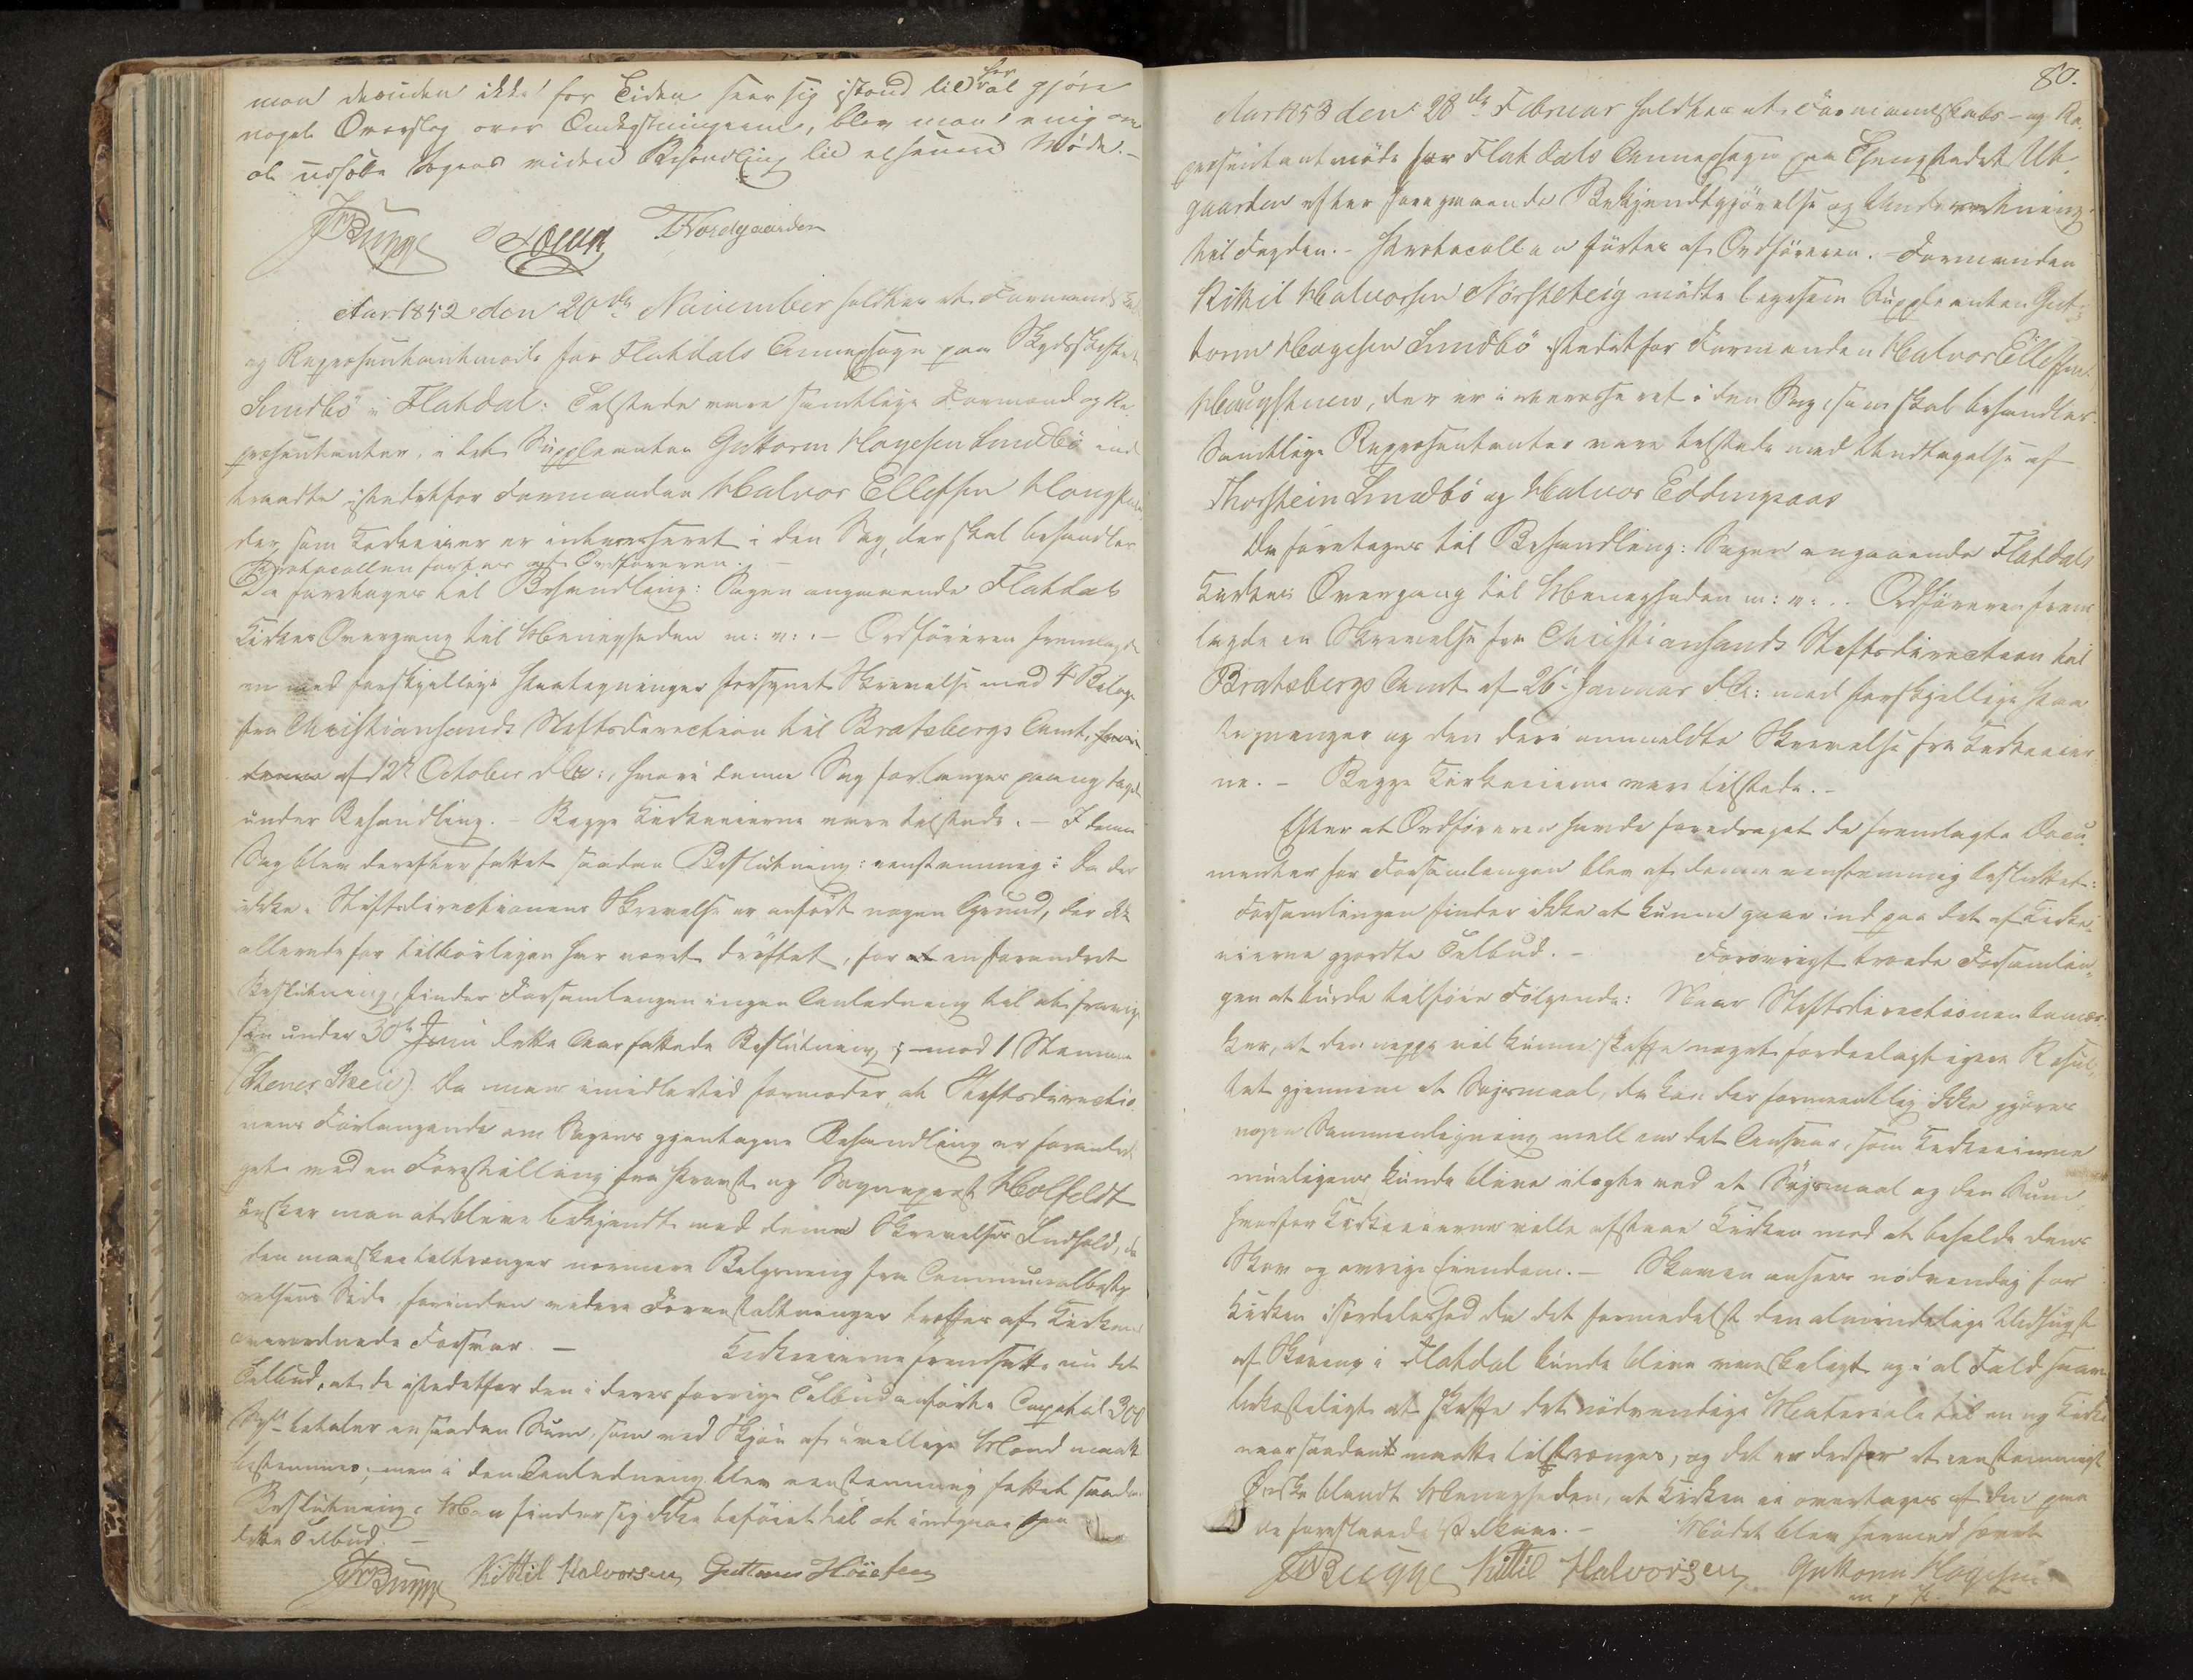 man desuden ikke for Tiden seer sig istand til her at gjøre
noget Overslag over Omkostningerne, blev man enig om
at udsætte Sagens videre Behandling til et senere Møde. -
JWBugge THNordgaarden
Aar 1852 den 20de November holdtes et Formandskabs
og Repræsentantmøde for Flatdals Annexsogn paa Skydsskiftet
Sundbö i Flatdal: Tilstede vare samtlige Formænd og Re-
præsentanter, idet Suppleanten Guttorm Hagesen Sundbö ind
traadte istedetfor Formanden Halvor Ellefsen Haugstuen
der som Kirkeeier er interesseret i den Sag, der skal behandles
Protocollen førtes af Ordføreren. -
Da foretages til Behandling: Sagen angaaende Flatdals
Kirkes Overgang til Menigheden m: v: . - Ordføreren fremlagde
en med forskjellige Paategninger forsynet Skrivelse med 4 Bilage
fra Christiansands Stiftsdirection til Bratsbergs Amt,
af 12te October d.A:, hvori denne Sag forlanges paany tagen
under Behandling. - Begge Kirkeeierne vare tilstede. - I denne
Sag blev derefter fattet saadan Beslutning: eenstemmig: Da der
ikke i Stiftsdirectionens Skrivelse er anført nogen Grund, der ikke
allerede før tilbørligen har været drøftet, for en forandret
Beslutning, finder Forsamlingen ingen Anledning til at fravige
sin under 30te Juni dette Aar fattede Beslutning; - mod 1 Stemme
(Stener Skeie). Da man imidlertid formoder, at Stiftsdirectio
nens Forlangende om Sagens gjentagne Behandling er foranled
get ved en Forestilling fra Provst og Sogneprest Holfeldt
ønsker man at blive bekjendt med denne Skrivelses Indhold, da
den maaskee tiltrænger nærmere Belysning fra Communalbesty
relsens Side, forinden videre Foranstaltninger træffes af Kirkens
overordnede Forsvar. - Kirkeeierne fremsatte nu det
Tilbud, at de istedetfor den i deres forrige Tilbud anførte Capital 300
Spd betaler en saadan Sum, som ved Skjøn af uvillige Mænd maatte
bestemmes; men i den Anledning blev eenstemmig fattet saadan
Beslutning: Man finder sig ikke beføiet til at indgaae paa
dette Tilbud. -
JWBugge Kittil Halvorsen Guttorm Höiesen
80.
Aar 1853 den 28de Februar holdtes et Formandskabs- og Re-
præsentantmøde for Flatdals Annexsogn paa Thingstedet Ut-
gaarden efter foregaaende Bekjendtgjørelse og Underretning
til Fogden. - Protocollen førtes af Ordføreren. - Formanden
Kittil Halvorsen Nörsteteig mødte ligesom Suppleanten Gut-
torm Hagesen Sundbö istedetfor Formanden Halvor Ellefsen
Haugstuen, der er interesseret i den Sag, som skal behandles.
Samtlige Repræsentanter vare tilstede med Undtagelse af
Thorstein Sundbö og Halvor Eddingsaas
Da foretages til Behandling: Sagen angaaende Flatdals
Kirkes Overgang til Menigheden m: v: . . Ordføreren frem
lagde en Skrivelse fra Christiansands Stiftsdirection til
Bratsbergs Amt af 26 Januar d.A: med forskjellige Paa
tegninger og den deri anmeldte Skrivelse fra Kirkeeier
ne. - Begge Kirkeeierne vare tilstede. -
Efter at Ordføreren havde foredraget de fremlagte Docu
menter for Forsamlingen blev af denne eenstemmig besluttet:
Forsamlingen finder ikke at kunne gaae ind paa det af Kirke-
eierne gjordte Tilbud. - Forøvrigt troede Forsamlin-
gen at burde tilføie Følgende: Naar Stiftsdirectionen bemær-
ker, at den neppe vil kunne skaffe noget fordeelagtigere Resul-
tat gjennem et Søgsmaal, da kan der formeentlig ikke gjøres
nogen Sammenligning mellem det Ansvar, som Kirkeeierne
mueligens kunde blive ilagte ved et Søgsmaal og den Sum,
hvorfor Kirkeeierne ville afstaae Kirken med at beholde dens
Skov og øvrige Eiendom. - Skoven ansees nødvendig for
Kirken i særdeleshed da det formedelst den almindelige Udhugst
af Skoven i Flatdal kunde blive vanskeligt og i al Fald saare
bekosteligt at skaffe det nødvendige Materiale til en ny Kirke
naar saadant maatte tiltrænges, og det er derfor et eenstemmigt
Ønske blandt Menigheden, at Kirken ei overtages af den paa
de foreslaaede Vilkaar. - Mødet blev hermed hævet
JWBugge Kittil Halvorsen Guttorm Hagesen
m. p. P.